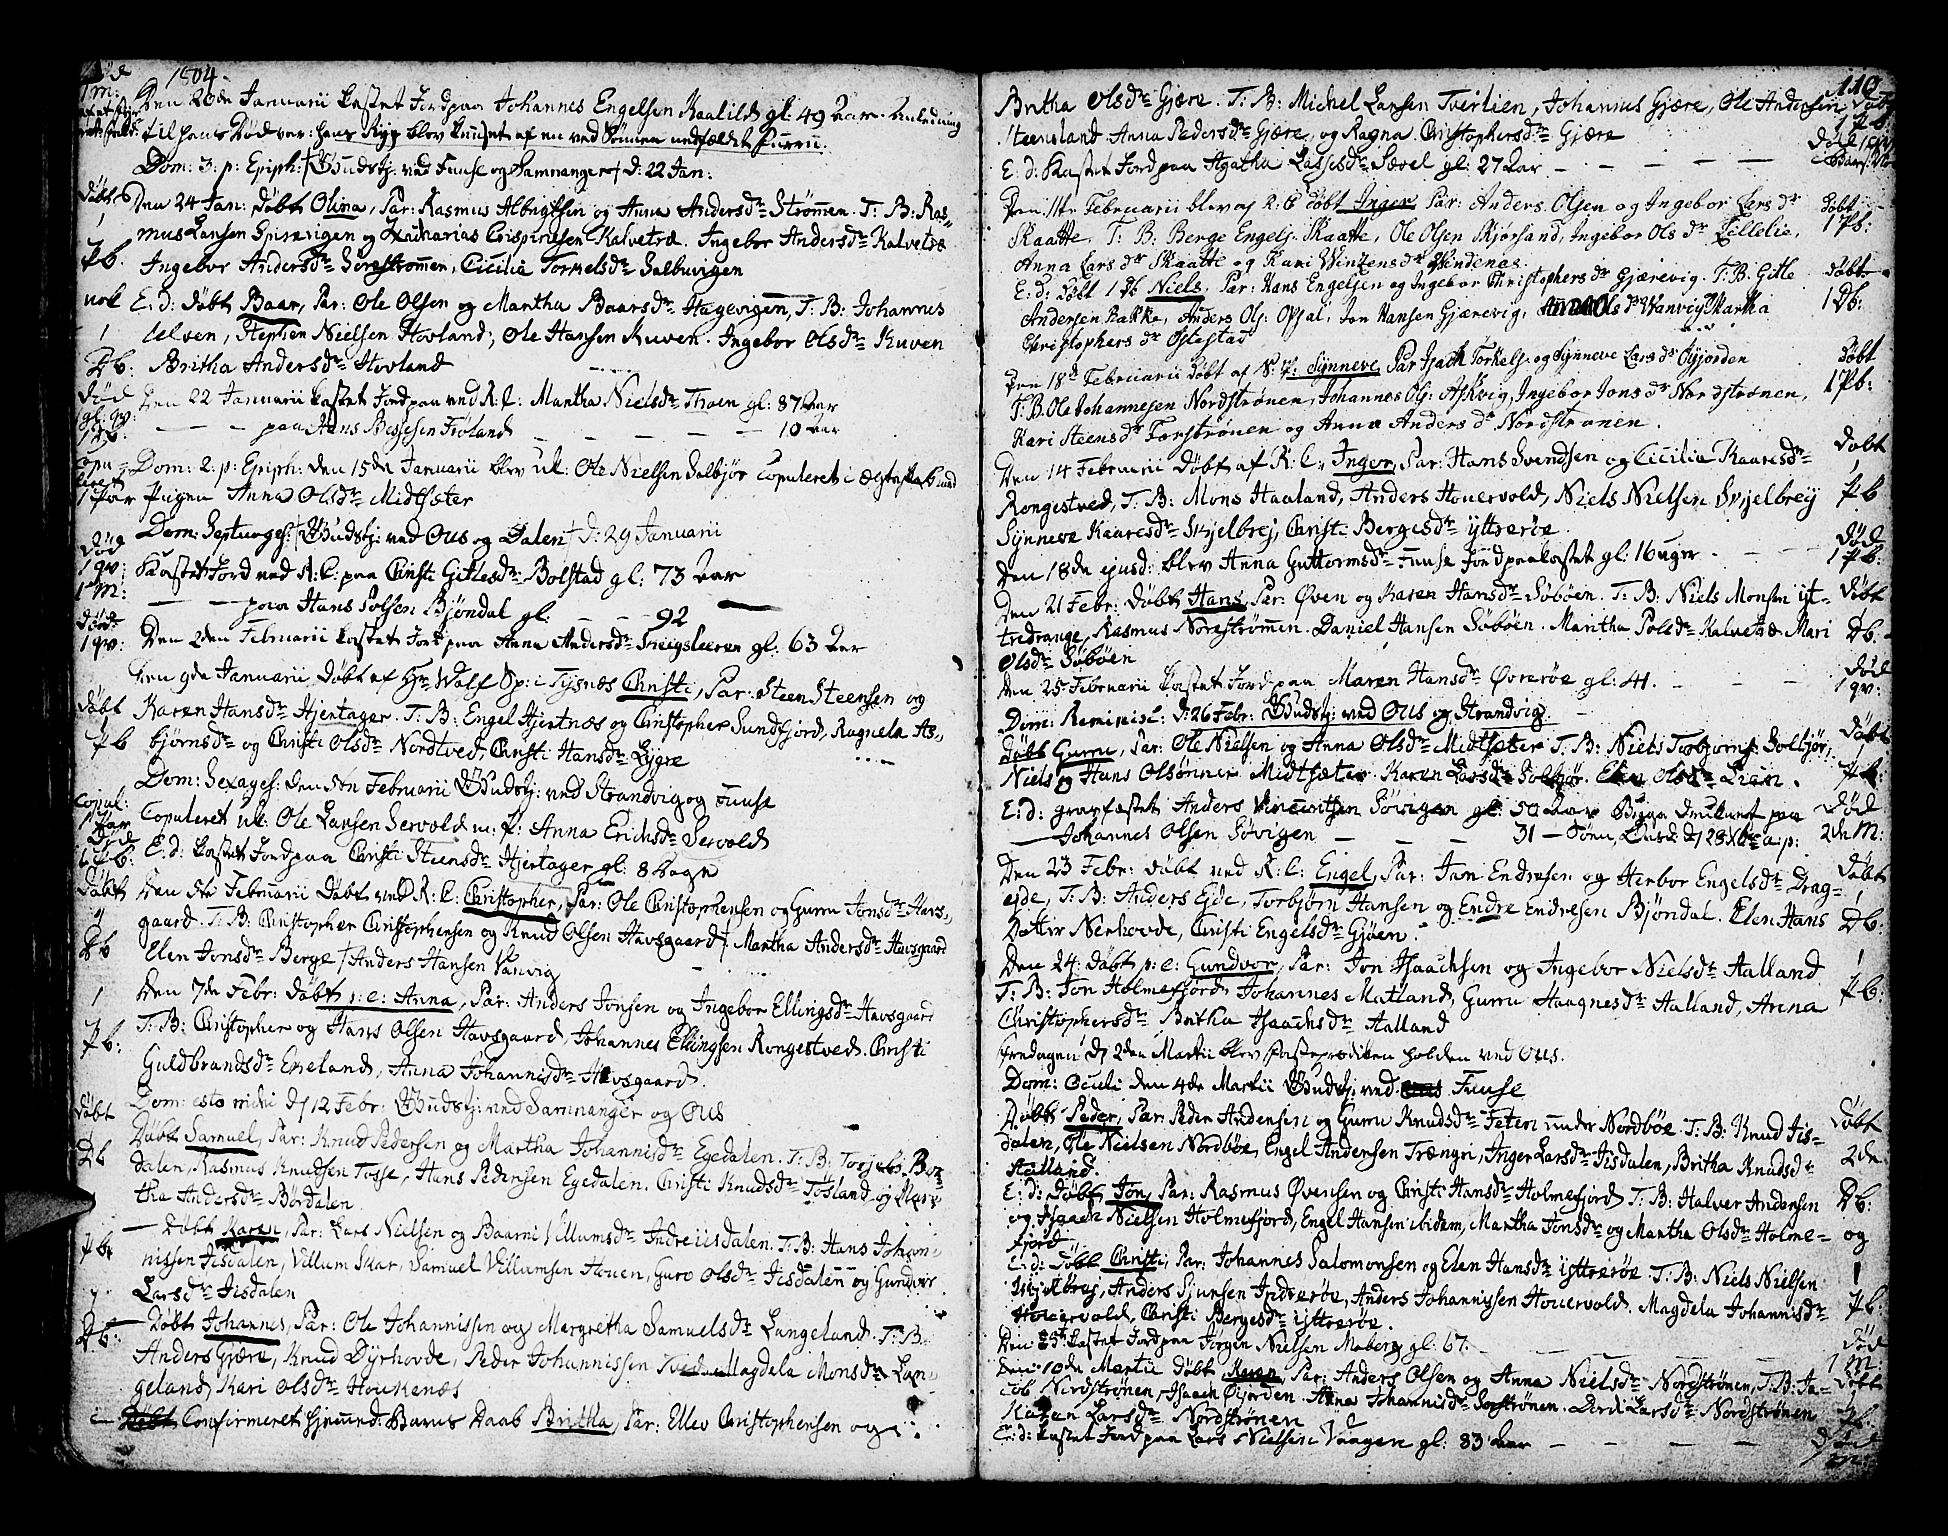 1804.
Den 20de Januarii kastet Jord paa Johannes Engelsen Kaalild gl: 49 Aar. Anledning
til hans Død var: hans Ryg blev knuset af en ved Tønnen nedfældt Furru.
Dom: 3. p: Epiph: Gudstj: ved Fuuse og Samnanger d: 22 Jan:
Døbt Den 24 Jan: Døbt Olina, Par: Rasmus Albrigtsen og Anna Andersdr Strømmen. T: B: Ras-
1 mus Larsen Spirevigen og Zacharias Crispinesen Kalvetræ. Ingebor Andersdr Kalvetræ
Pb. Ingebor Andersdr Sørestrømmen, Cicilia Tormelsdr Salbuvigen
nok E: d: Døbt Baar, Par: Ole Olsen og Martha Baarsdr Hagevigen, T: B: Johannes
1 Ulven, Stephen Nielsen Hovland, Ole Hansen Kuven. Ingebor Olsdr Kuven
Db: Britha Andersdr Hovland
Død Den 22 Januarii kastet Jord paa ved K: C: Martha Nielsdr Thoen gl: 87 Aar
gl: qv: — — paa Hans Bessesen Fioland — — — — 10 Aar
Dom: 2: p: Epiph: den 15de Januarii blev uk: Ole Nielsen Salbjør Copuleret i
1 Par Pigen Anna Olsdr Midtsæter
Dom: Septuages: Gudstj: ved Ous og Dalen d: 29 Januarii
Død
1 qv: Kastet Jord ved K: C: paa Christi Gitlesdr Bolstad gl: 73 Aar
1 M: — — paa Hans Polsen Bjøndal gl: — — 92
Død:
1 qv: Den 2den Februarii kastet Jord paa Anna Andersdr gl: 63 Aar
Den 9de Januarii Døbt af Hr Wolf Sp: i Tysnæs Christi, Par: Steen Steensen og
Døbt Karen Hansdr Hjertager. T: B: Engel Hjertnæs og Christopher Sundfjord, Ragnela As-
Pb bjørnsdr og Christi Olsdr Nordtved, Christi Hansdr Lygre
Dom: Sexages: den 5te Februarii Gudstj: ved Strandvig og Fuuse
Copul: Copuleret uk: Ole Larsen Servold m: P: Anna Erichsdr Servold
1 Par
Død
1 Pb: E: d: kastet Jord paa Christi Steensdr Hjertager gl: 8 Dage
Døbt Den 5te Februarii Døbt ved K: C: Christopher, Par: Ole Christophersen og Guru Jonsdr Havs-
gaard. T: B: Christopher Christophersen og Knud Olsen Havsgaard, Martha Andersdr Havsgaard
Db Elen Jonsdr Berge, Anders Hansen Vanvig
1 Den 7de Febr: Døbt p: e: Anna, Par: Anders Jonsen og Ingebor Ellingsdr Havsgaard
Pb: T: B: Christopher og Hans Olsen Havsgaard, Johannes Ellingsen Rongestved. Christi
Guldbrandsdr Eneland, Anna Johannisdr Havsgaard.
Dom: esto mihi d 12 Febr: Gudstj: ved Samnanger og Ous
Døbt Døbt Samuel, Par: Knud Pedersen og Martha Johannisdr Egedalen. T: B:
Db dalen, Rasmus Knudsen Tosse, Hans Pedersen Egedalen. Christi Knudsdr Tosland og
tha Andersdr Børdalen
— Døbt Karen, Par: Lars Nielsen og Baarni Villumsdr Indre iisdalen. T: B: Hans Johan-
Pb: nissen Iisdalen, Villum Skar, Samuel Villumsen Houen, Guro Olsdr Iisdalen og Gundvor
Larsdr Iisdalen
— Døbt Johannes, Par: Ole Johannissen og Margretha Samuelsdr Langeland. T: B:
Db: Anders Gjære, Knud Dyrhovde, Peder Johannissen Magdela Monsdr Lan-
geland, Kari Olsdr Houkenæs
Confirmeret hjemmed: Barns Daab Britha, Par: Ellev Christophersen og
110
Britha Olsdr Gjære. T: B: Michel Larsen Tverlien, Johannes Gjære, Ole Andersen Døbt
Steensland Anna Pedersdr Gjære, og Ragna Christophersdr Gjære 1 Pb:
E: d: Kastet Jord paa Agatha Lassesdr Sævel gl: 27 Aar — — — — Død 1 qv
Den 11te Februarii blev af R: C døbt Inger, Par: Anders Olsen og Ingebor Larsdr Døbt
Skaatte, T: B: Berge Engels: Skaatte, Ole Olsen Skjørsand, Ingebor Olsdr Lillelie, 1 Pb:
Anna Larsdr Skaatte og Kari Vinzensdr Vindenæs.
E: d: døbt 1 Db Niels, Par: Hans Engelsen og Ingebor Christophersdr Gjærevig. T: B: Gitle Døbt
Andersen Bakke, Anders Ols: Opsal, Jon Hansen Gjærevig, Olsdr Vanvig Martha 1 Db:
Christophersdr Østestad
Den 18d Februarii døbt af Synneve, Par Isach Torkels: og Synneve Larsdr Øyjorden Døbt
T: B. Ole Johannesen Nordstrønen, Johannes Ols: Askvig, Ingebor Jonsdr Nordstrønen, 1 Pb:
Kari Steensdr Forstrønen og Anna Andersdr Nordstrønen.
Den 14 Februarii Døbt af K: C:, Inger, Par: Hans Svendsen og Cicilia Kaaresdr Døbt
Rongestved, T: B: Mons Haaland, Anders Houervold, Niels Nielsen Skjelbrey Pb
Synneve Kaaresdr Skjelbrej, Christi Bergesdr ÿttrerøe. Død
Den 18de ejusd: blev Anna Guttormsdr Fuuse Jord paakastet gl: 16 uger — — — 1 Pb:
Den 21 Febr: Døbt Hans, Par: Øven og Karen Hansdr Søbøen. T: B: Niels Monsen yt- Døbt
tredrange, Rasmus Norestrømmen. Daniel Hansen Søbøen. Maritha Polsdr Kalvetræ Mari Db.
Olsdr Søbøen
Den 25 Februarii kastet Jord paa Maren Hansdr Øvrerøe gl: 41. — — — Død 1 qv:
Dom: Reminisc: d: 26 Febr: Gudstj: ved Ous og Strandvig.
Døbt Guru, Par: Ole Nielsen og Anna Olsdr Midtsæter T: B: Niels Torbjorns: Solbjør, Døbt
Niels og Hans Olsønner Midtsæter. Karen Larsdr Solbjør. Elen Olsdr Lien. Pb.
E: d: grapfæstet Anders Vincentsen Søvigen gl: 50 Aar Begge druknet paa Død
— Johannes Olsen Søvigen — — — 31 — Søen, d 28 Xbr a: p: 2de M:
Den 23 Febr: Døbt ved K: C: Engel, Par: Jan Endresen og Herbor Engelsdr Drag- Døbt
ejde, T: B: Anders Ejde, Torbjørn Hansen og Endre Endresen Bjøndal. Elen Hans 1
Datter Nerhovde, Christi Engelsdr Gjøen. Db:
Den 24: døbt p: e: Gundvor, Par: Jon Isaachsen og Ingebor Nielsdr Aalland 1
T: B: Jon Holmefjord, Johannes Matland, Guru Haagnesdr Aalland, Anna Pb:
Christophersdr Britha Isaachsdr Aalland
Fredagen d 2den Martii blev Fasteprædiken holden ved Ous.
Dom: Oculi den 4de Martii Gudstj: ved Fuuse
Døbt Peder, Par: Peder Andersen og Guru Knudsdr Teten under Nordbøe T: B: Knud Iis- Døbt
dalen, Ole Nielsen Nordbøe, Engel Andersen Trængri, Inger Larsdr Iisdalen, Britha Knudsdr 2de
Aalland.
E: d: Døbt Jon, Par: Rasmus Øvensen og Christi Hansdr Holmefjord T: B: Halver Andersen Db:
og Isaach Nielsen Holmefjord, Engel Hansen ibidem, Martha Jonsdr og Martha Olsdr Holme- og
fjord
E: d: Døbt Christi, Par: Johannes Salomonsen og Elen Hansdr ÿttrerøe T: B: Niels Nielsen 1
Skjelbrej, Anders Sjursen Indrerøe, Anders Johannissen Houervold. Magdela Johannisdr Pb.
Houervold, Christi Bergesdr ÿttrerøe.
Den kastet Jord paa Jørgen Nielsen Moberg gl: 67. — — — Død 1 M:
Den 10de Martii Døbt Karen, Par: Anders Olsen og Anna Nielsdr Nordstrønen, T: B: Ja- Døbt
cob Nordstrønen, Isaach Øijorden. Anna Johannisdr Sørstrønen. Larsdr Nordstrønen
Karen Larsdr Nordstrønen
E: d: kastet Jord paa Lars Nielsen Vaagen gl: 83 Aar — — — Død